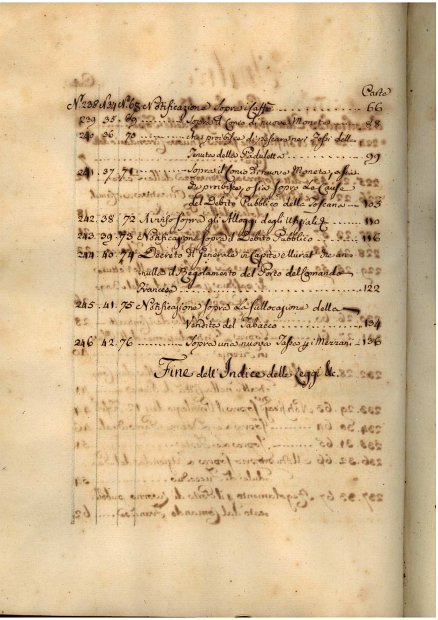 Carte
N.° 238 N.34 N.° 68 Notificazione Sopra i Caffè 66
239. 35. 69 Sopra il Conio di nuove Monete 88
240 36. 70 che proibisce di pescare nei Fossi della
Tenuta della Padulette 99
241. 37. 71 Sopra il Conio di nuova Moneta,
del Debito Pubblico della Toscana 103
242. 38. 72 Avviso sopra gli Alloggi degli Uffiziali 110
243. 39. 73 Notificazione Sopra il Debito Pubblico 116
244. 40. 74 Decreto del Generale in Capite Murat che an-
nulla il Regolamento del Porto del Comando
Francese 122
245. 41. 75 Notificazione Sopra La sullocazione della
Vendita del Tabacco 134
246 42. 76 Sopra una nuova Tassa 136
Fine dell'Indice delle Leggi &c.